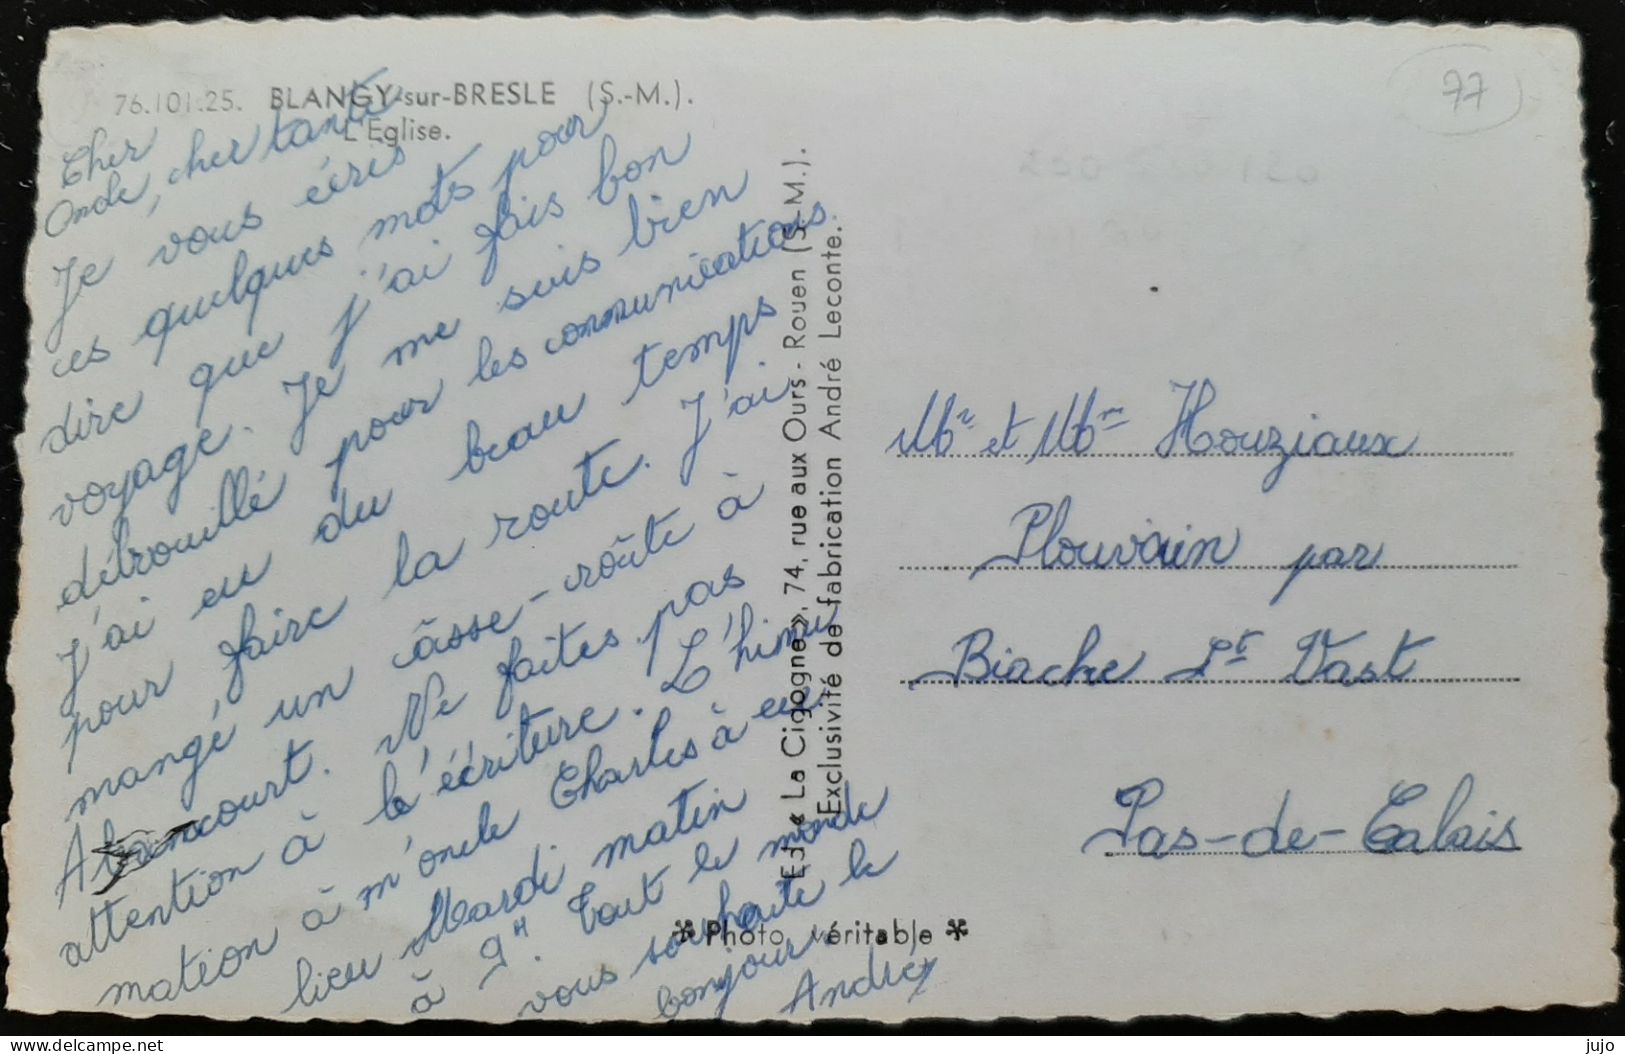 76.101.25. BLANGY-sur-BRESLE (S.-M.).
L'Eglise.
77
Cher
Oncle, cher tante
Je vous écris
ces quelques mots pour
dire que j'ai fais bon
voyage. Je me suis bien
débrouillé pour les communications.
J'ai eu du beau temps
pour faire la route. J'ai
mangé un câsse-croûte à
Ne faites pas
attention à l'écriture. L'hinu
mation à m'oncle Charles à eu
lieu Mardi matin
à 9H. Tout le monde
vous souhaite le
bonjour.
André
Ed. « La Cigogne », 74, rue aux Ours - Rouen (S.-M.).
Exclusivité de fabrication André Leconte.
Photo véritable
Mr et Mme Houziaux
Plouvain par
Biache St Vast
Pas-de-Calais
jujo